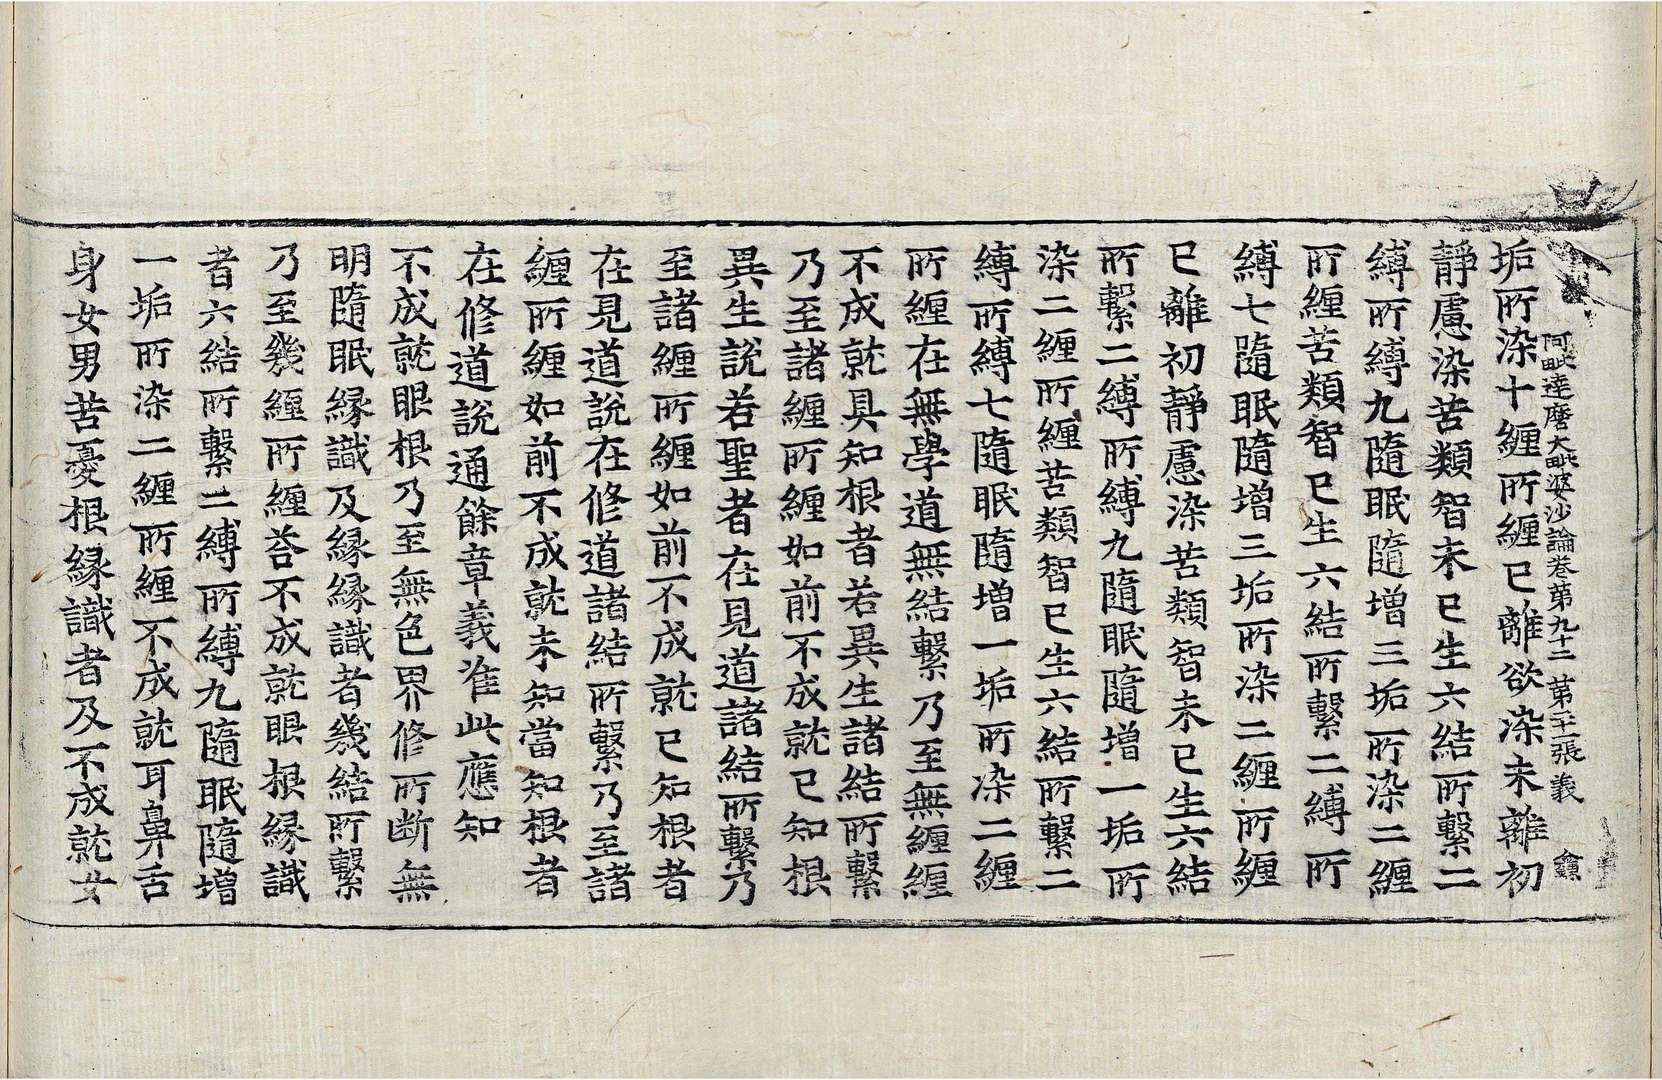 阿毗達磨大毗婆沙論卷第九十二 第二十一張 義
垢所染十纏所纏已離欲染未離初
靜慮染苦類智未已生六結所繫二
縛所縛九隨眠隨增三垢所染二纏
所纏苦類智已生六結所繫二縛所
縛七隨眠隨增三垢所染二纏所纏
已離初靜慮染苦類智未已生六結
所繫二縛所縛九隨眠隨增一垢所
染二纏所纏苦類智已生六結所繫二
縛所縛七隨眠隨增一垢所染二纏
所纏在無學道無結繫乃至無纏纏
不成就具知根者若異生諸結所繫
乃至諸纏所纏如前不成就已知根
異生說若聖者在見道諸結所繫乃
至諸纏所纏如前不成就已知根者
在見道說在修道諸結所繫乃至諸
纏所纏如前不成就未知當知根者
在修道說通餘章義准此應知
不成就眼根乃至無色界修所断無
明隨眠緣識及緣緣識者幾結所繫
乃至幾纏所纏荅不成就眼根緣識
者六結所繫二縛所縛九隨眠隨增
一垢所染二纏所纏不成就耳鼻舌
身女男苦憂根緣識者及不成就女